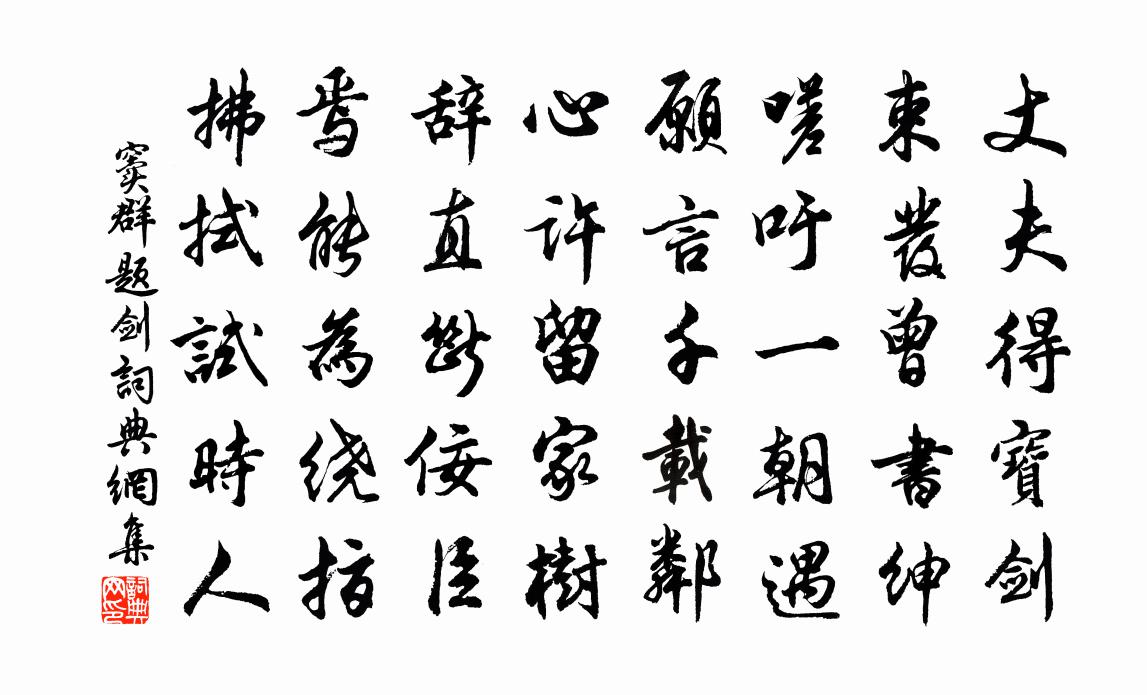 丈夫得寶剑
束髮曾書紳
嗟吁一朝遇
願言千載鄰
心許留家樹
辞直斷佞臣
焉能為绕指
拂拭試時人
竇群题剑詞典網集
詞典网印